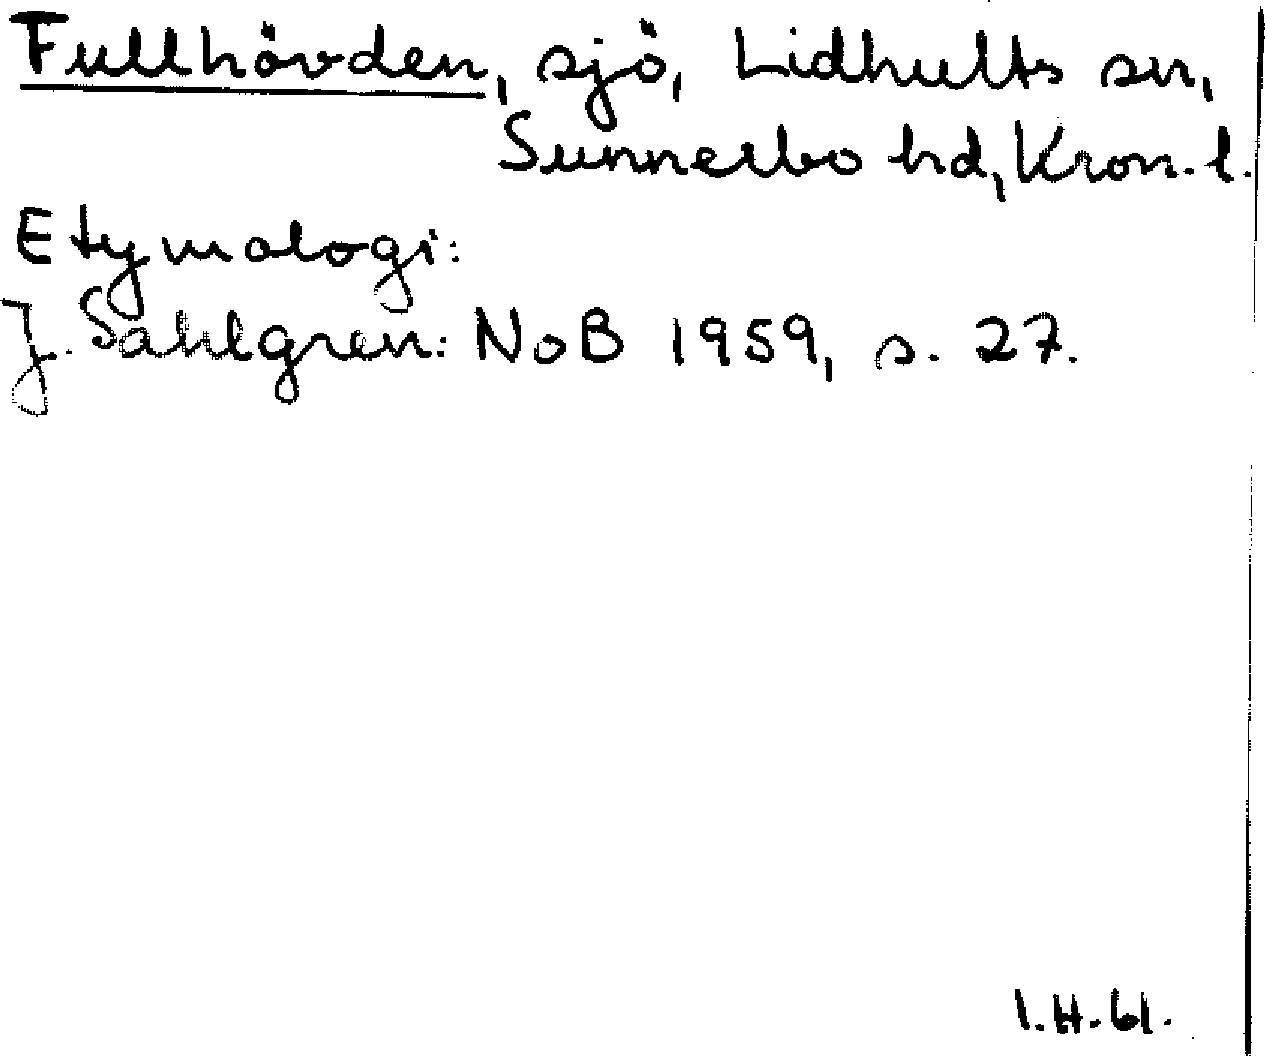 Fullhövden, sjö, Lidhults sn,
Sunnerbo hd, Kron. l.
Etymologi:
J. Sahlgren: NoB 1959, s. 27.
I.H.61.